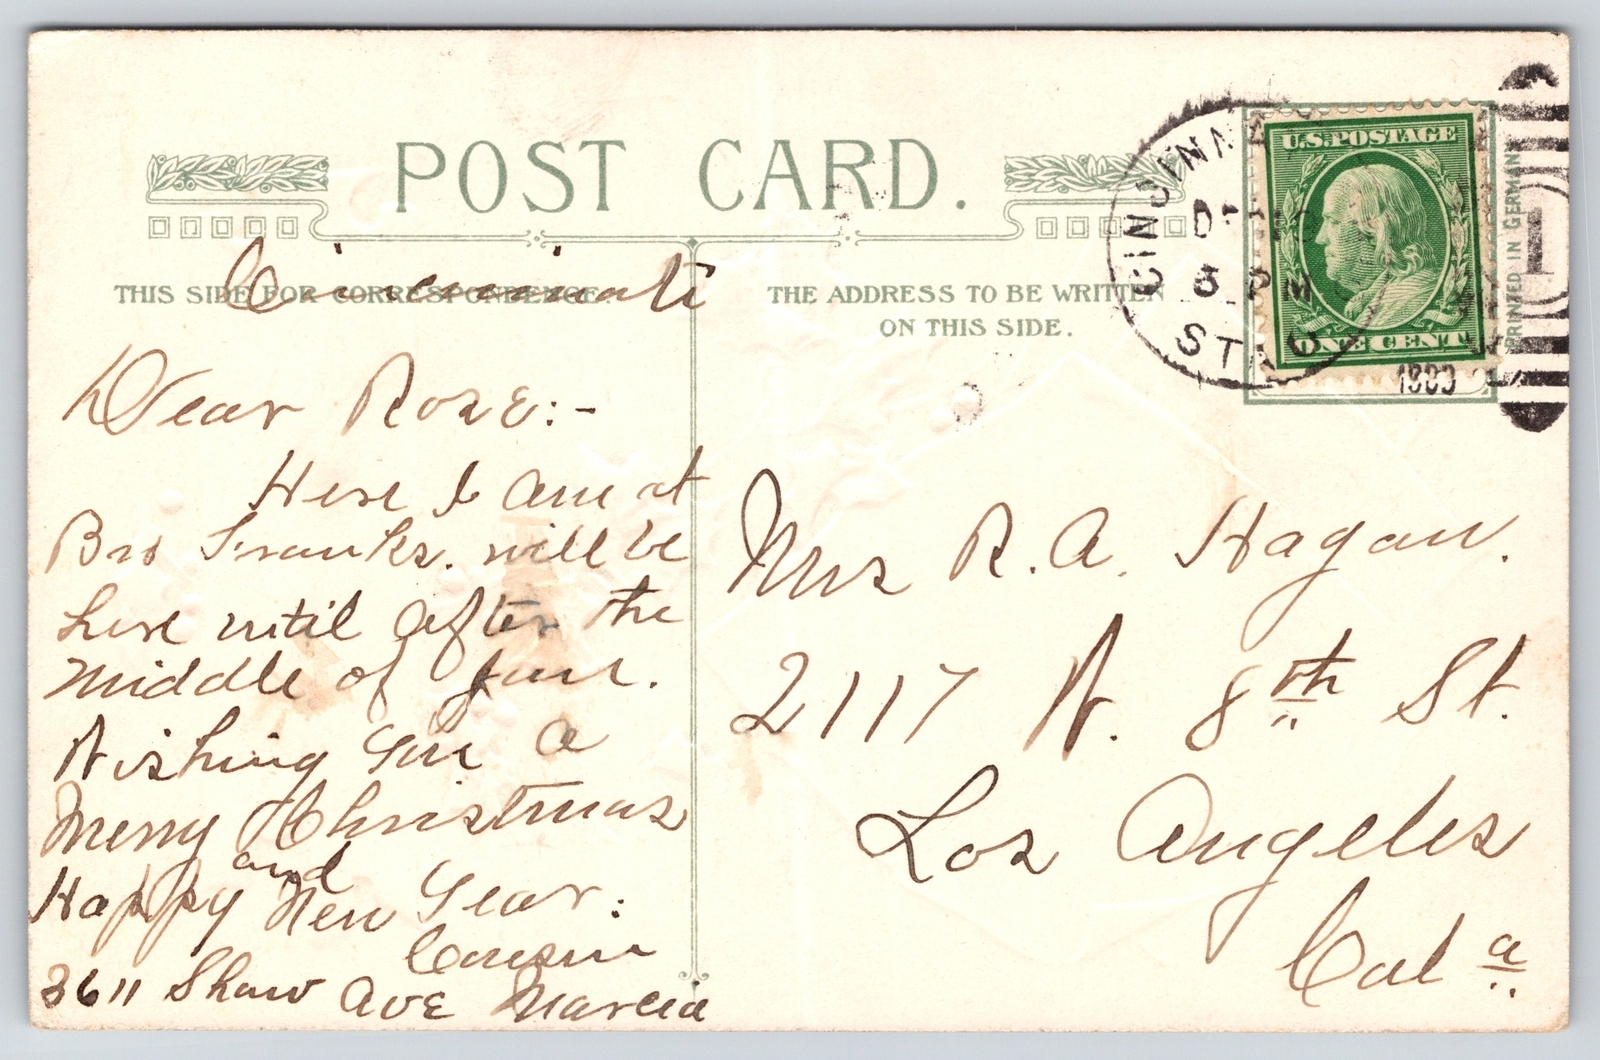 POST CARD.
THIS SIDE FOR CORRESPONDENCE
THE ADDRESS TO BE WRITTEN
ON THIS SIDE.
U.S. POSTAGE
ONE CENT
PRINTED IN GERMANY
CINCINNA
5 PM
STA
1
Cincinnati
Dear Rose:-
Here I am at
Bro Franks. will be
here until after the
Middle of Jan.
Wishing You a
Merry Christmas
and
Happy New Year:
Cousin
3611 Shaw Ave Marcia
Mrs R. A. Hagan.
2117 N. 8th St.
Los Angeles
Cal a